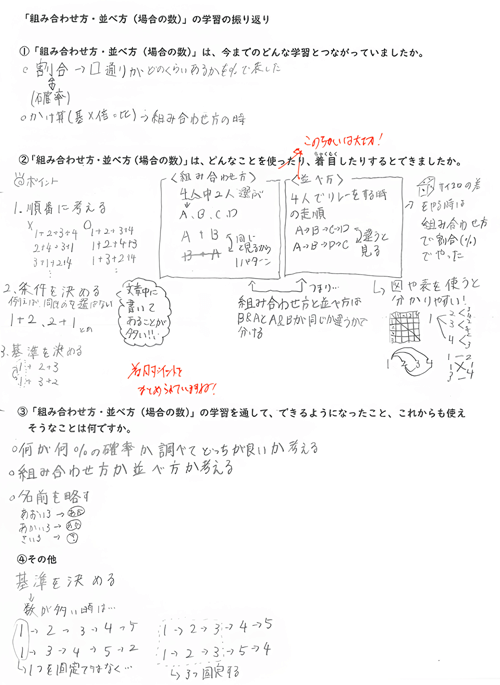 「組み合わせ方・並べ方（場合の数）」の学習の振り返り
①「組み合わせ方・並べ方（場合の数）」は、今までのどんな学習とつながっていましたか。
○割合→□通りがどのくらいあるかを%で表した
(確率)
○かけ算(基×倍=比)→組み合わせ方の時
②「組み合わせ方・並べ方（場合の数）」は、どんなことを使ったり、着目したりするとできましたか。
このちがいは大切!
ポイント
1.順番に考える
1+2+3+4
1+2+3+4
2+4+3+1
1+2+4+3
3+1+2+4
1+3+2+4
2.条件を決める
例えば、同じのを選ばない
1+2、2+1
3.基準を決める
1+2+3
1+3+2
文章中に
書いて
あることが
多い!!
<組み合わせ方>
4人中2人選ぶ
A、B、C、D
A+B
B+A
同じ
と見るから
1パターン
<並べ方>
4人でリレーをする時
の走順
A→B→C→D
A→B→D→C
違うと
見る
つまり…
組み合わせ方と並べ方は
B&AとA&Bが同じか違うかで
分ける
サイコロの差
をやる時は
組み合わせ方
で割合(%)
でやった
図や表を使うと
分かりやすい!
着目ポイントを
まとめられていますね!
③「組み合わせ方・並べ方（場合の数）」の学習を通して、できるようになったこと、これからも使え
そうなことは何ですか。
○何が何%の確率か調べてどっちが良いか考える
○組み合わせ方か並べ方か考える
○名前を略す
あおいろ→あお
あかいろ→あか
④その他
基準を決める
数が多い時は…
1→2→3→4→5
1→2→3→4→5
1→3→4→5→2
1→2→3→5→4
1つを固定ではなく…
3つ固定する